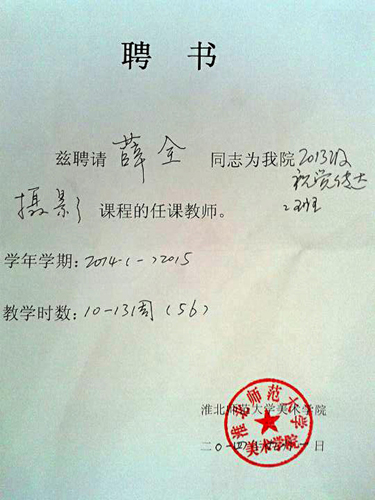 聘 书
兹聘请 薛全 同志为我院 2013级
视觉传达
2班
摄影 课程的任课教师。
学年学期: 2014-(-)2015
教学时数: 10-13周(56)
淮北师范大学美术学院
淮北师范大学
美术学院
二0一四年 一日